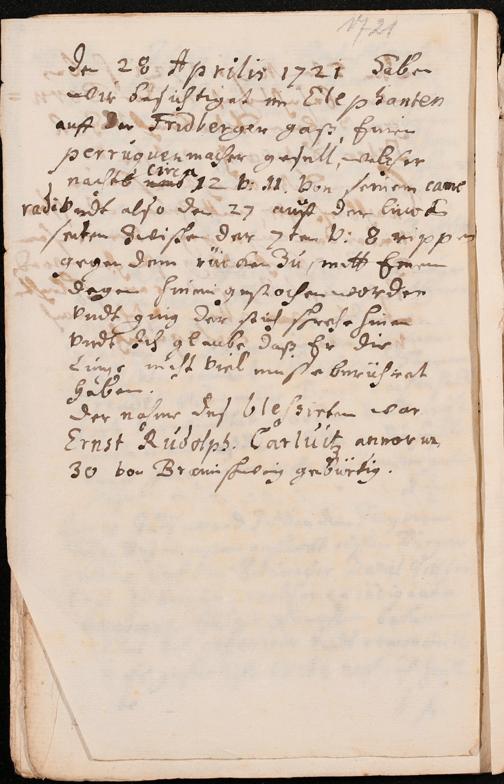 1721
den 28 Aprilis 1721 haben
wir besichtiget im Elephanten
auff der Fridberger gaß, Einen
perruquenmacher gesell, welcher
nachts circa 12 V. 11. von seinem came
radt Vndt also den 27 auff der lincken
seiten zwischen der 7ten V: 8 rippen
gegen dem rücken zu, mitt Einem
degen hinein gestochen worden
Vndt ging der stich
Vndt Ich glaube daß Er die
Lunge nicht viel muße berühret
haben.
der nahme deß bleßirten war
Ernst Rudolph. Carluitz annorum
30 von Braunschweig gebürtig.